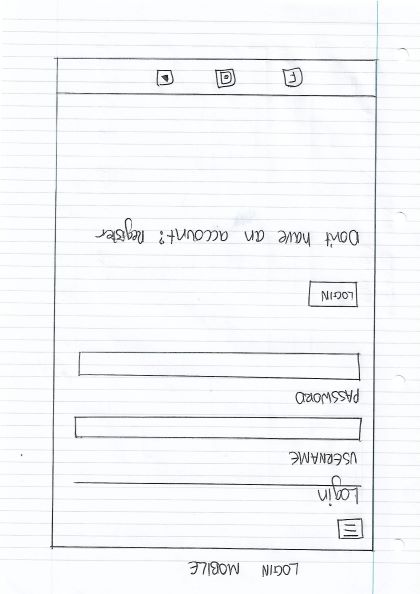 LOGIN MOBILE
Login
USERNAME
PASSWORD
LOGIN
Don't have an account? Register
F